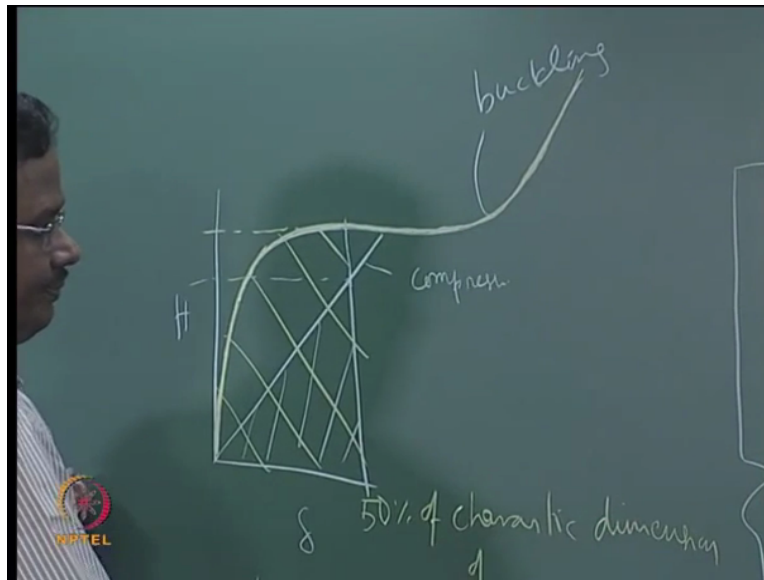 buckling
compress.
H
δ 50% of charastic dimension
of
NPTEL